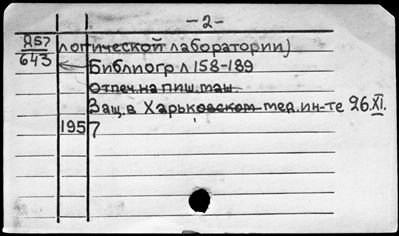 -2-
Д57 логической лаборатории)
643 Библиогр л 158-189
Отпеч. на пиш. маш.
Защ. в Харьковском мед. ин-те 26.XI.
1957